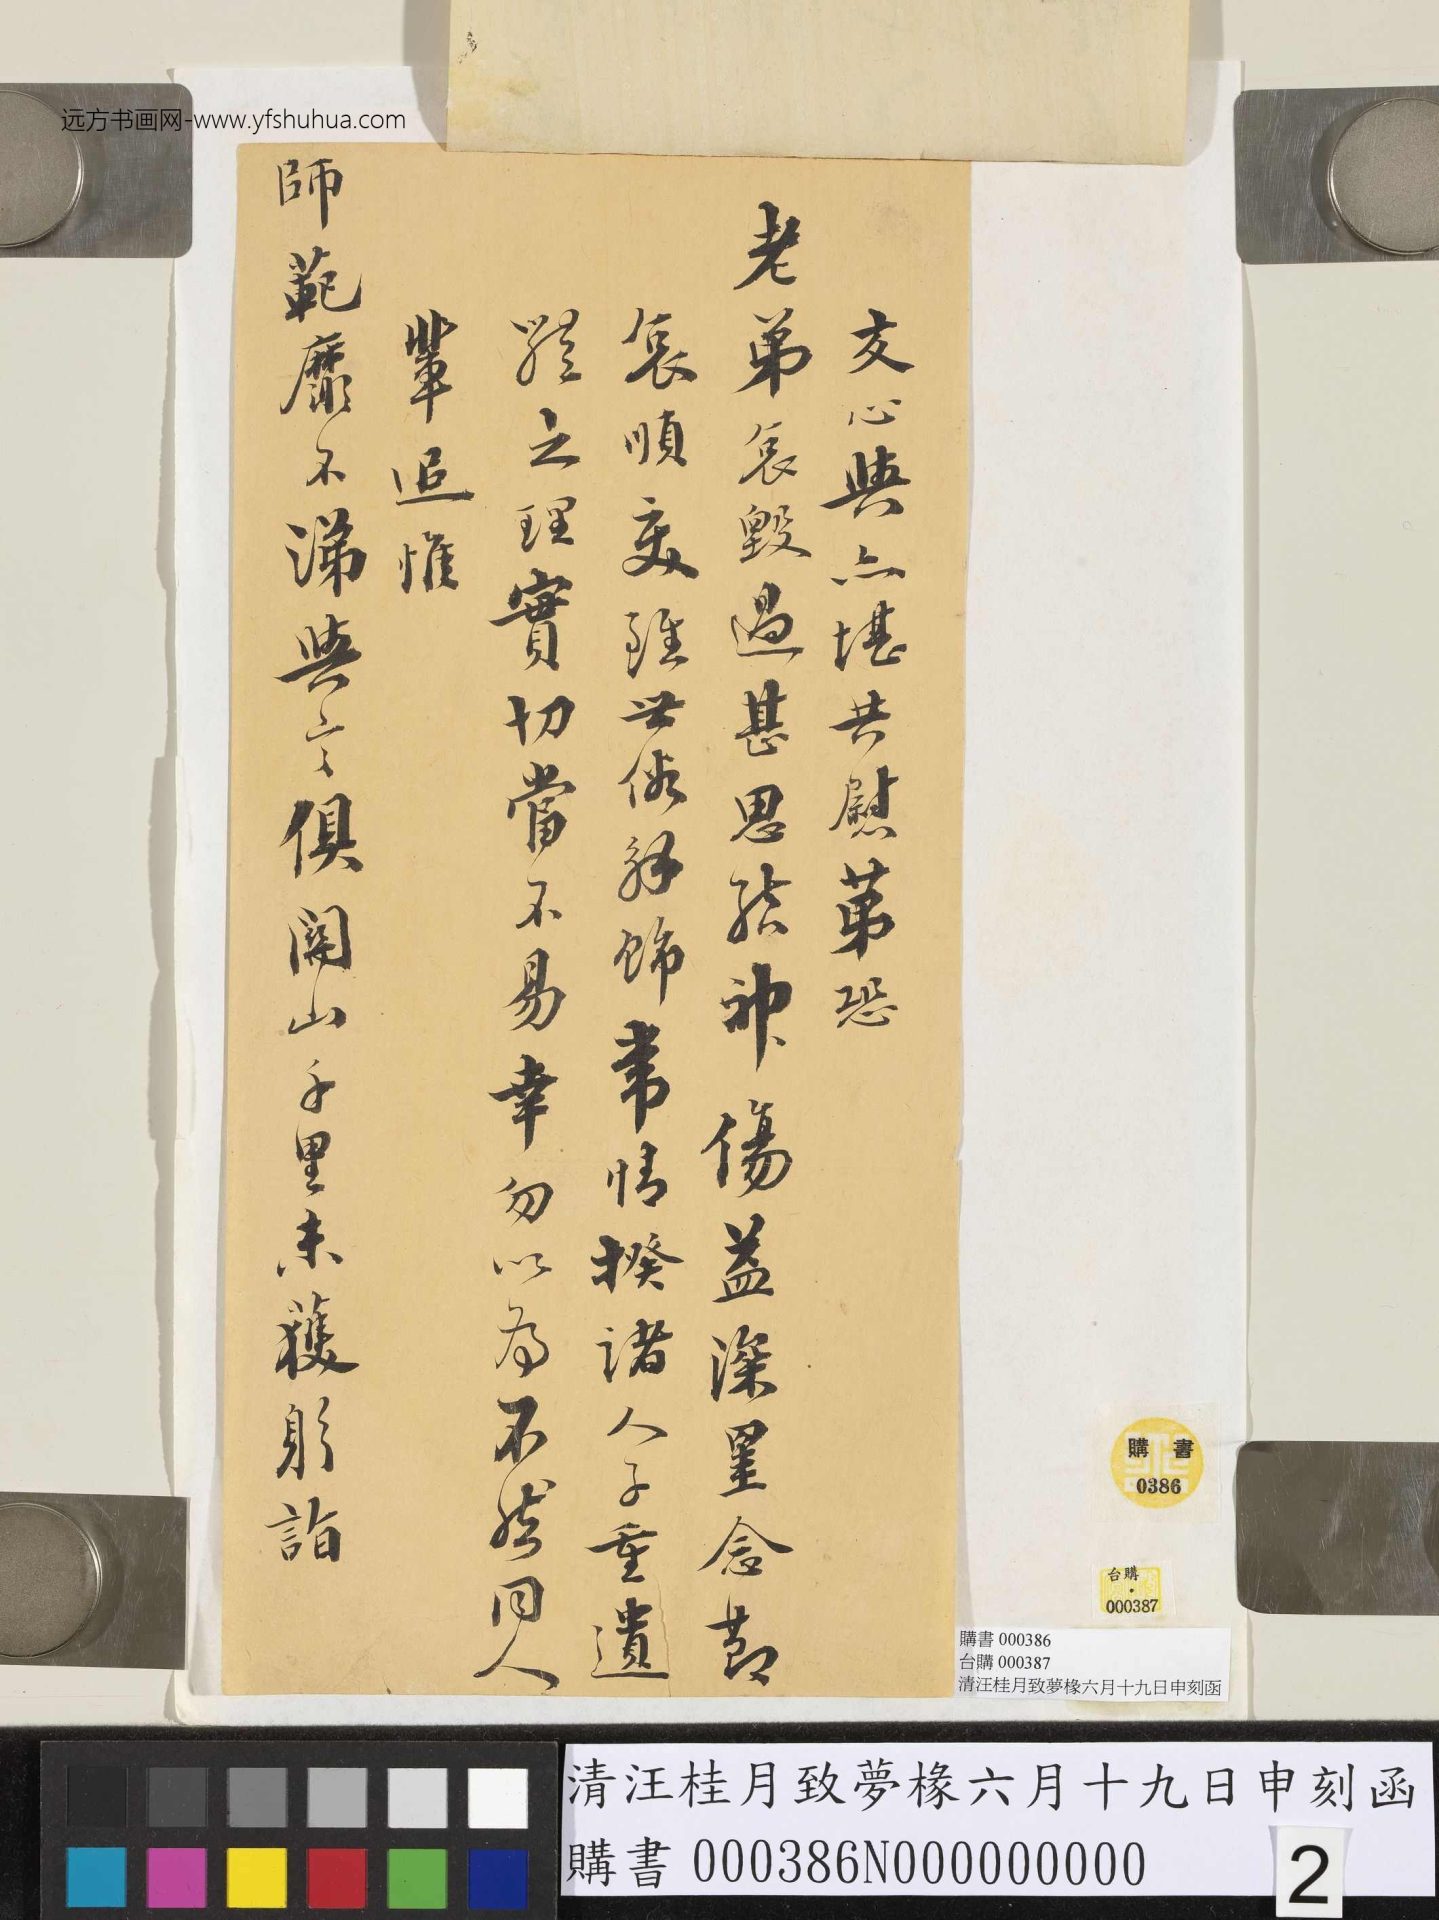 远方书画网-www.yfshuhua.com
友心與亦堪共慰弟恐
老弟哀毀過甚思結神傷益深墨念節
哀順變雖世俗解飾常情揆諸人子重遺
體之理實切當不易幸勿以為不然同人
輩追惟
師範靡不涕與言俱關山千里未獲躬詣
購書
0386
台購
000387
購書 000386
台購 000387
清汪桂月致夢椽六月十九日申刻函
清汪桂月致夢椽六月十九日申刻函
購書 000386N000000000
2